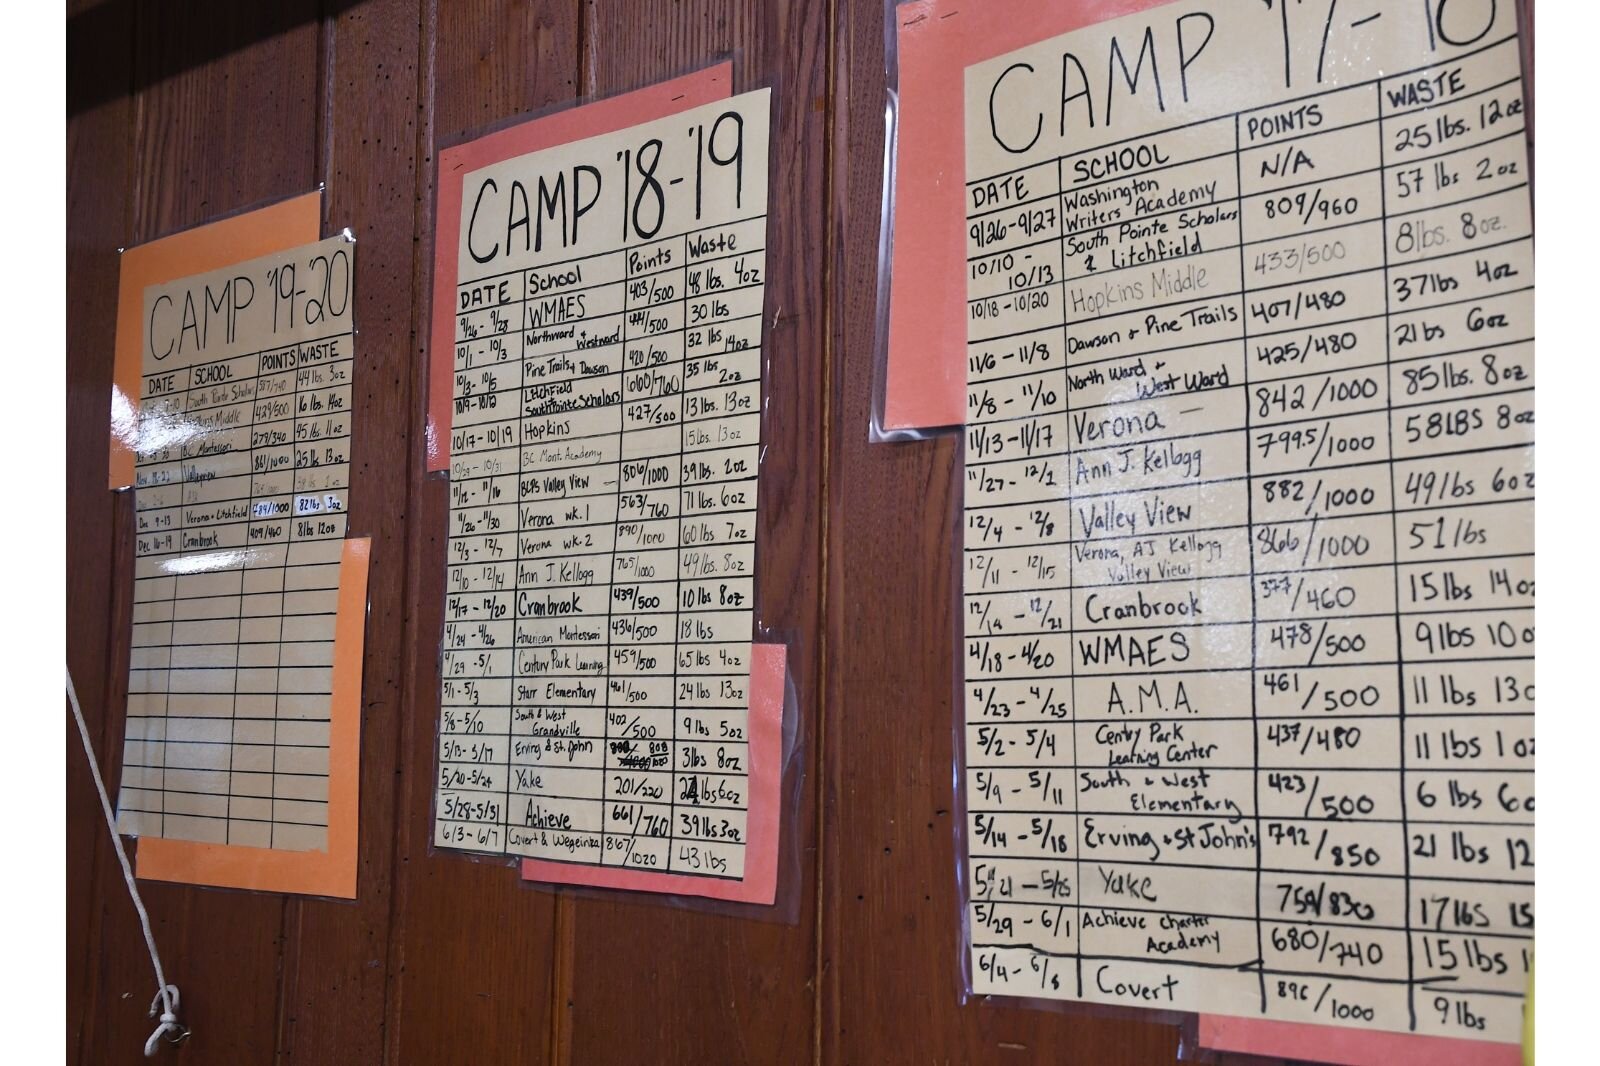 CAMP '19-'20
DATE SCHOOL POINTS WASTE
South Pointe Scholars 587/740 44 lbs. 3oz
Hopkins Middle 429/500 16 lbs. 14oz
BC Montessori 279/340 45 lbs. 11oz
Nov. 18-22 Valleyview 861/1000 25 lbs 13oz
Dec 2-6 AJK
Dec 9-13 Verona + Litchfield 784/1000 82 lbs 3oz
Dec 16-19 Cranbrook 409/460 8lbs 12oz
CAMP '18-'19
DATE School Points Waste
9/26 - 9/28 WMAES 403/500 48 lbs. 4oz
10/1 - 10/3 Northward & Westward 441/500 30 lbs
10/3 - 10/5 Pine Trails & Dawson 420/500 32 lbs 14oz
10/9 - 10/12 Litchfield SouthPointe Scholars 600/760 35 lbs 2oz
10/17 - 10/19 Hopkins 427/500 13 lbs. 13oz
10/29 - 10/31 BC Mont. Academy 15 lbs. 13oz
11/12 - 11/16 BCPS Valley View 806/1000 39 lbs. 2oz
11/26 - 11/30 Verona wk. 1 563/760 71 lbs. 6oz
12/3 - 12/7 Verona wk. 2 890/1000 60 lbs 7oz
12/10 - 12/14 Ann J. Kellogg 765/1000 49 lbs. 8oz
12/17 - 12/20 Cranbrook 439/500 10 lbs 8oz
4/24 - 4/26 American Montessori 436/500 18 lbs
4/29 - 5/1 Century Park Learning 459/500 65 lbs 4oz
5/1 - 5/3 Starr Elementary 461/500 24 lbs 13oz
5/8 - 5/10 South & West Grandville 402/500 9 lbs 5oz
5/13 - 5/17 Erving & St. John 808/1020 3lbs 8oz
5/20 - 5/24 Yake 201/220 lbs 6oz
5/28 - 5/31 Achieve 661/760 39 lbs 3oz
6/3 - 6/7 Covert & Wegeinka 867/1020 43 lbs
CAMP '17-'18
DATE SCHOOL POINTS WASTE
9/26 - 9/27 Washington Writers Academy N/A 25 lbs. 12oz
10/10 - 10/13 South Pointe Scholars & Litchfield 809/960 57 lbs 2oz
10/18 - 10/20 Hopkins Middle 433/500 8lbs. 8oz.
11/6 - 11/8 Dawson + Pine Trails 407/480 37lbs 4oz
11/8 - 11/10 North Ward & West Ward 425/480 2lbs 6oz
11/13 - 11/17 Verona — 842/1000 85 lbs. 8oz
11/27 - 12/1 Ann J. Kellogg 799.5/1000 58LBS 8oz
12/4 - 12/8 Valley View 882/1000 49 lbs 6oz
12/11 - 12/15 Verona, AJ Kellogg Valley View 866/1000 51 lbs
12/19 - 12/21 Cranbrook 377/460 15 lbs 14oz
4/18 - 4/20 WMAES 478/500 9 lbs 10 o
4/23 - 4/25 A.M.A. 461/500 11 lbs 13
5/2 - 5/4 Centry Park Learning Center 437/480 11 lbs 1 oz
5/9 - 5/11 South & West Elementary 423/500 6 lbs 6
5/14 - 5/18 Erving + St John's 792/850 21 lbs 12
5/21 - 5/25 Yake 759/830 17 lbs 15
5/29 - 6/1 Achieve Charter Academy 680/740 15 lbs 1
6/4 - 6/8 Covert 896/1000 9 lbs